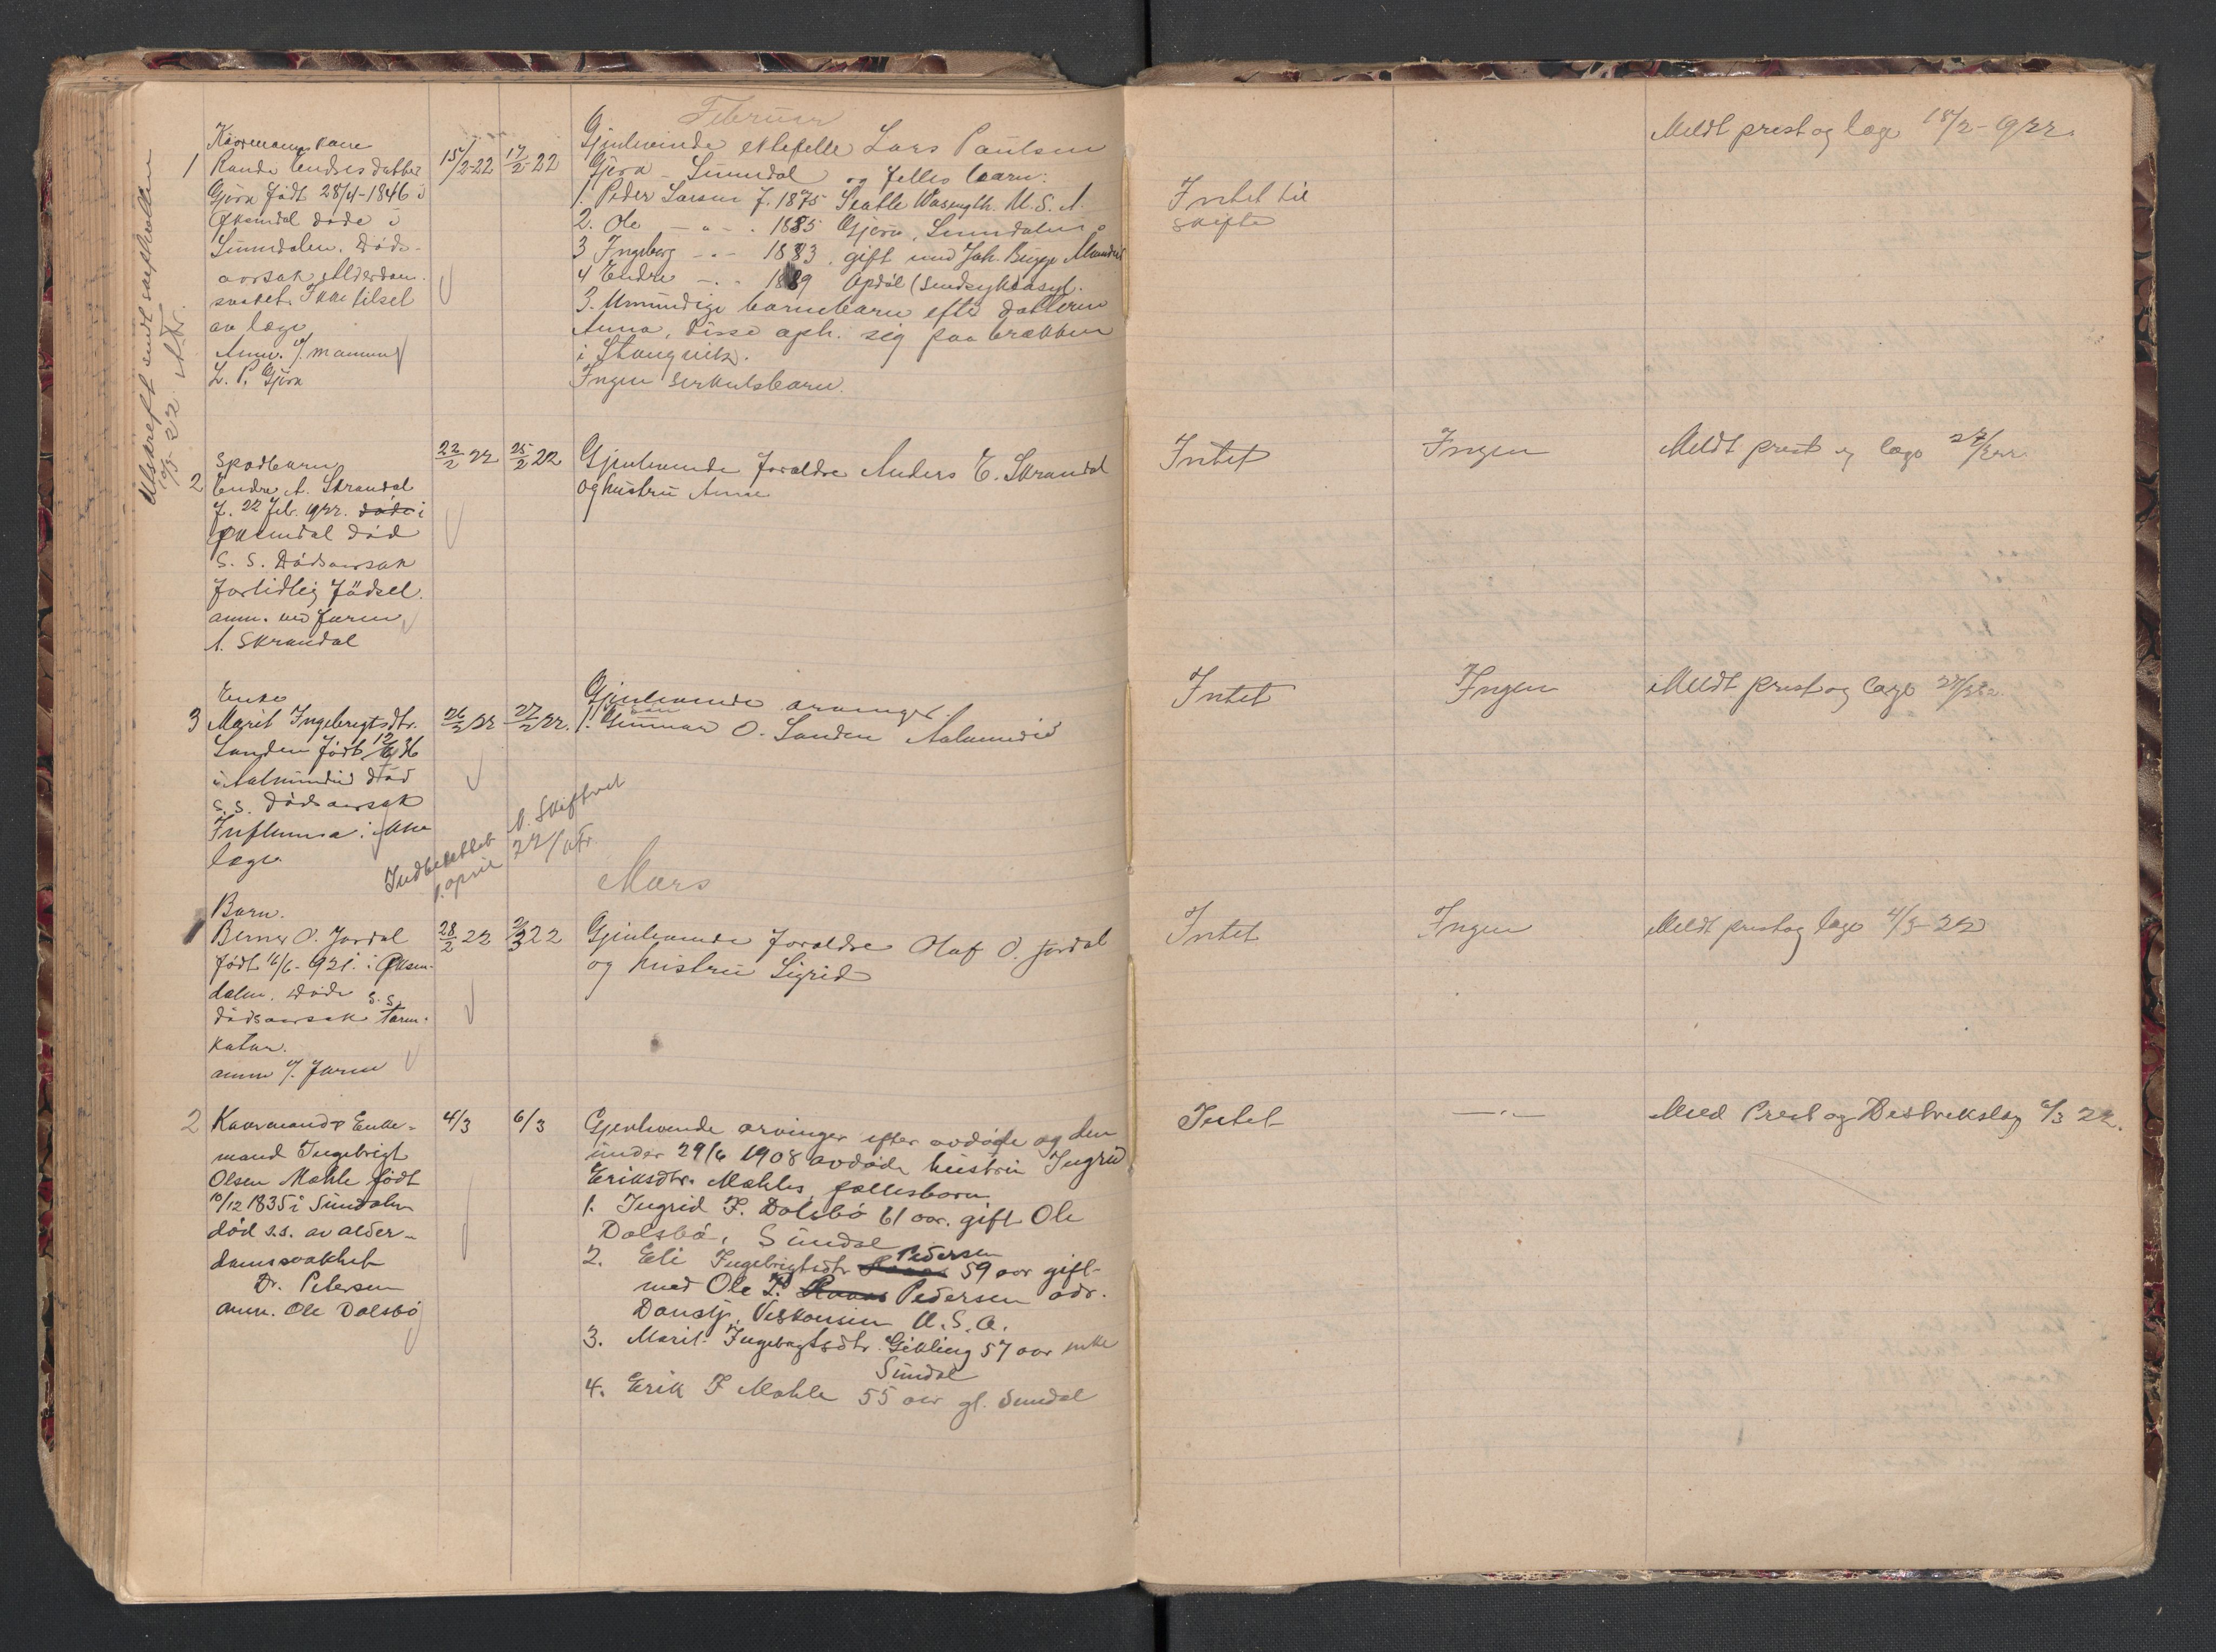 Februar
Utskrift sendt samskullen
10/3 22
Kaarmands kone
1 Randi Endresdatter
Gjøra født 28/4-1846 i
Øksendal døde i
Sunndalen. Døds-
aarsak Alderdom-
svakket. Ikke tilset
av læge
Anm. v/ mannen
L. P. Gjøra
15/2-22
17/2-22
Gjenlevende ektefelle Lars Paulsen
Gjøra - Sunndal og felles barn:
1. Peder Larsen f. 1875 Seatle Wasength. U.S.A.
2. Ole - " - . 1885 Gjøra, Sunndalen
3 Ingeberg - " - 1883. gift med Joh. Bugge
4 Endre - " - 1889 Opdøl (Sindsykeasyl.
3. Umyndige barnebarn efter datteren
Anna, disse oph. sig paa brækken
i Stangvik.
Ingen serkulsbarn.
Intet til
skifte
Meldt prest og læge 18/2-922.
Spædbarn
2 Endre A. Skrandal
f. 22 Feb. 922. døde i
Øksendal død
S. S. Dødsaarsak
fortidlig fødsel.
anm. ved faren
A. Skrandal
22/2 22
25/2 22
Gjenlevende foreldre Anders E. Skrandal
og hustru Anne
Intet
Ingen
Meldt prest og læge 27/2 22.
Enke
3 Marit Ingebrigtsdtr.
Sanden født
i Aalvundeid død
S. S. Dødsaarsak
Influensa: ikke
læge
26/2 22
27/2 22.
Gjenlevende arvinger.
1. Gunnar O. Sanden Aalvundeid
Intet
Ingen
Meldt prest og læge
Indberettet S. Skifteret
1. april 22
Mars
Barn.
1 Berner O. Jordal
født 16/6-921. i Øksen-
dalen. Døde S. S.
dødsaarsak tarm-
katar.
anm v/. faren
28/2 22
2/3 22
Gjenlevende foreldre Olaf O. Jordal
og hustru Sigrid
Intet
Ingen
Meldt prest og læge 4/3-22
2 Kaarmand & Enke-
mand Ingebrigt
Olsen Mahle født
10/12 1835 i Sundalen
død s.s. av alder-
damssvakket
Dr. Petersen
anm. Ole Dalsbø
4/3
6/3
Gjenlevende arvinger efter avdøde og den
under 29/6 1908 avdøde hustru Ingrid
Eriksdtr. Mahles fællesbarn
1. Ingrid I. Dalsbø 61 aar. gift Ole
Dalsbø, Sundal
2. Eli Ingebrigtsdtr Pedersen 59 aar gift
med Ole P. Pedersen adr.
Viskonsin U.S.A.
3. Marit Ingebrigtsdtr. Gikling 57 aar enke
Sundal
4. Erik I Mahle 55 aar gl. Sundal
Intet
— " —
Med Prest og Distrikslæg 6/3 22.